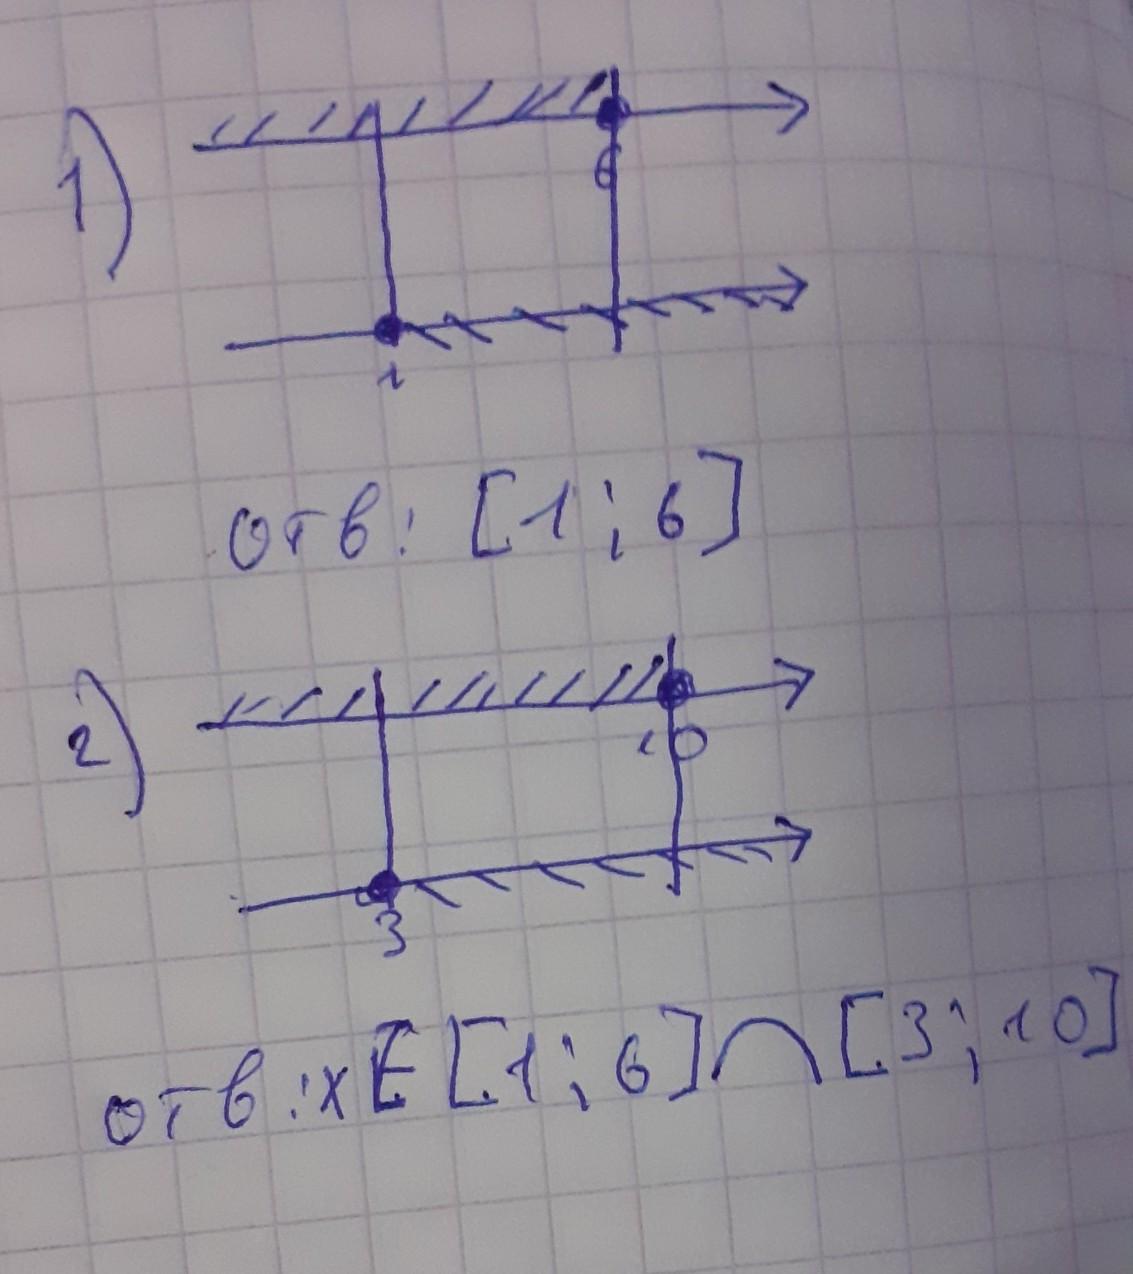 1)
6
1
отв: [1; 6]
2)
10
3
отв: x ∈ [1; 6] ∩ [3; 10]